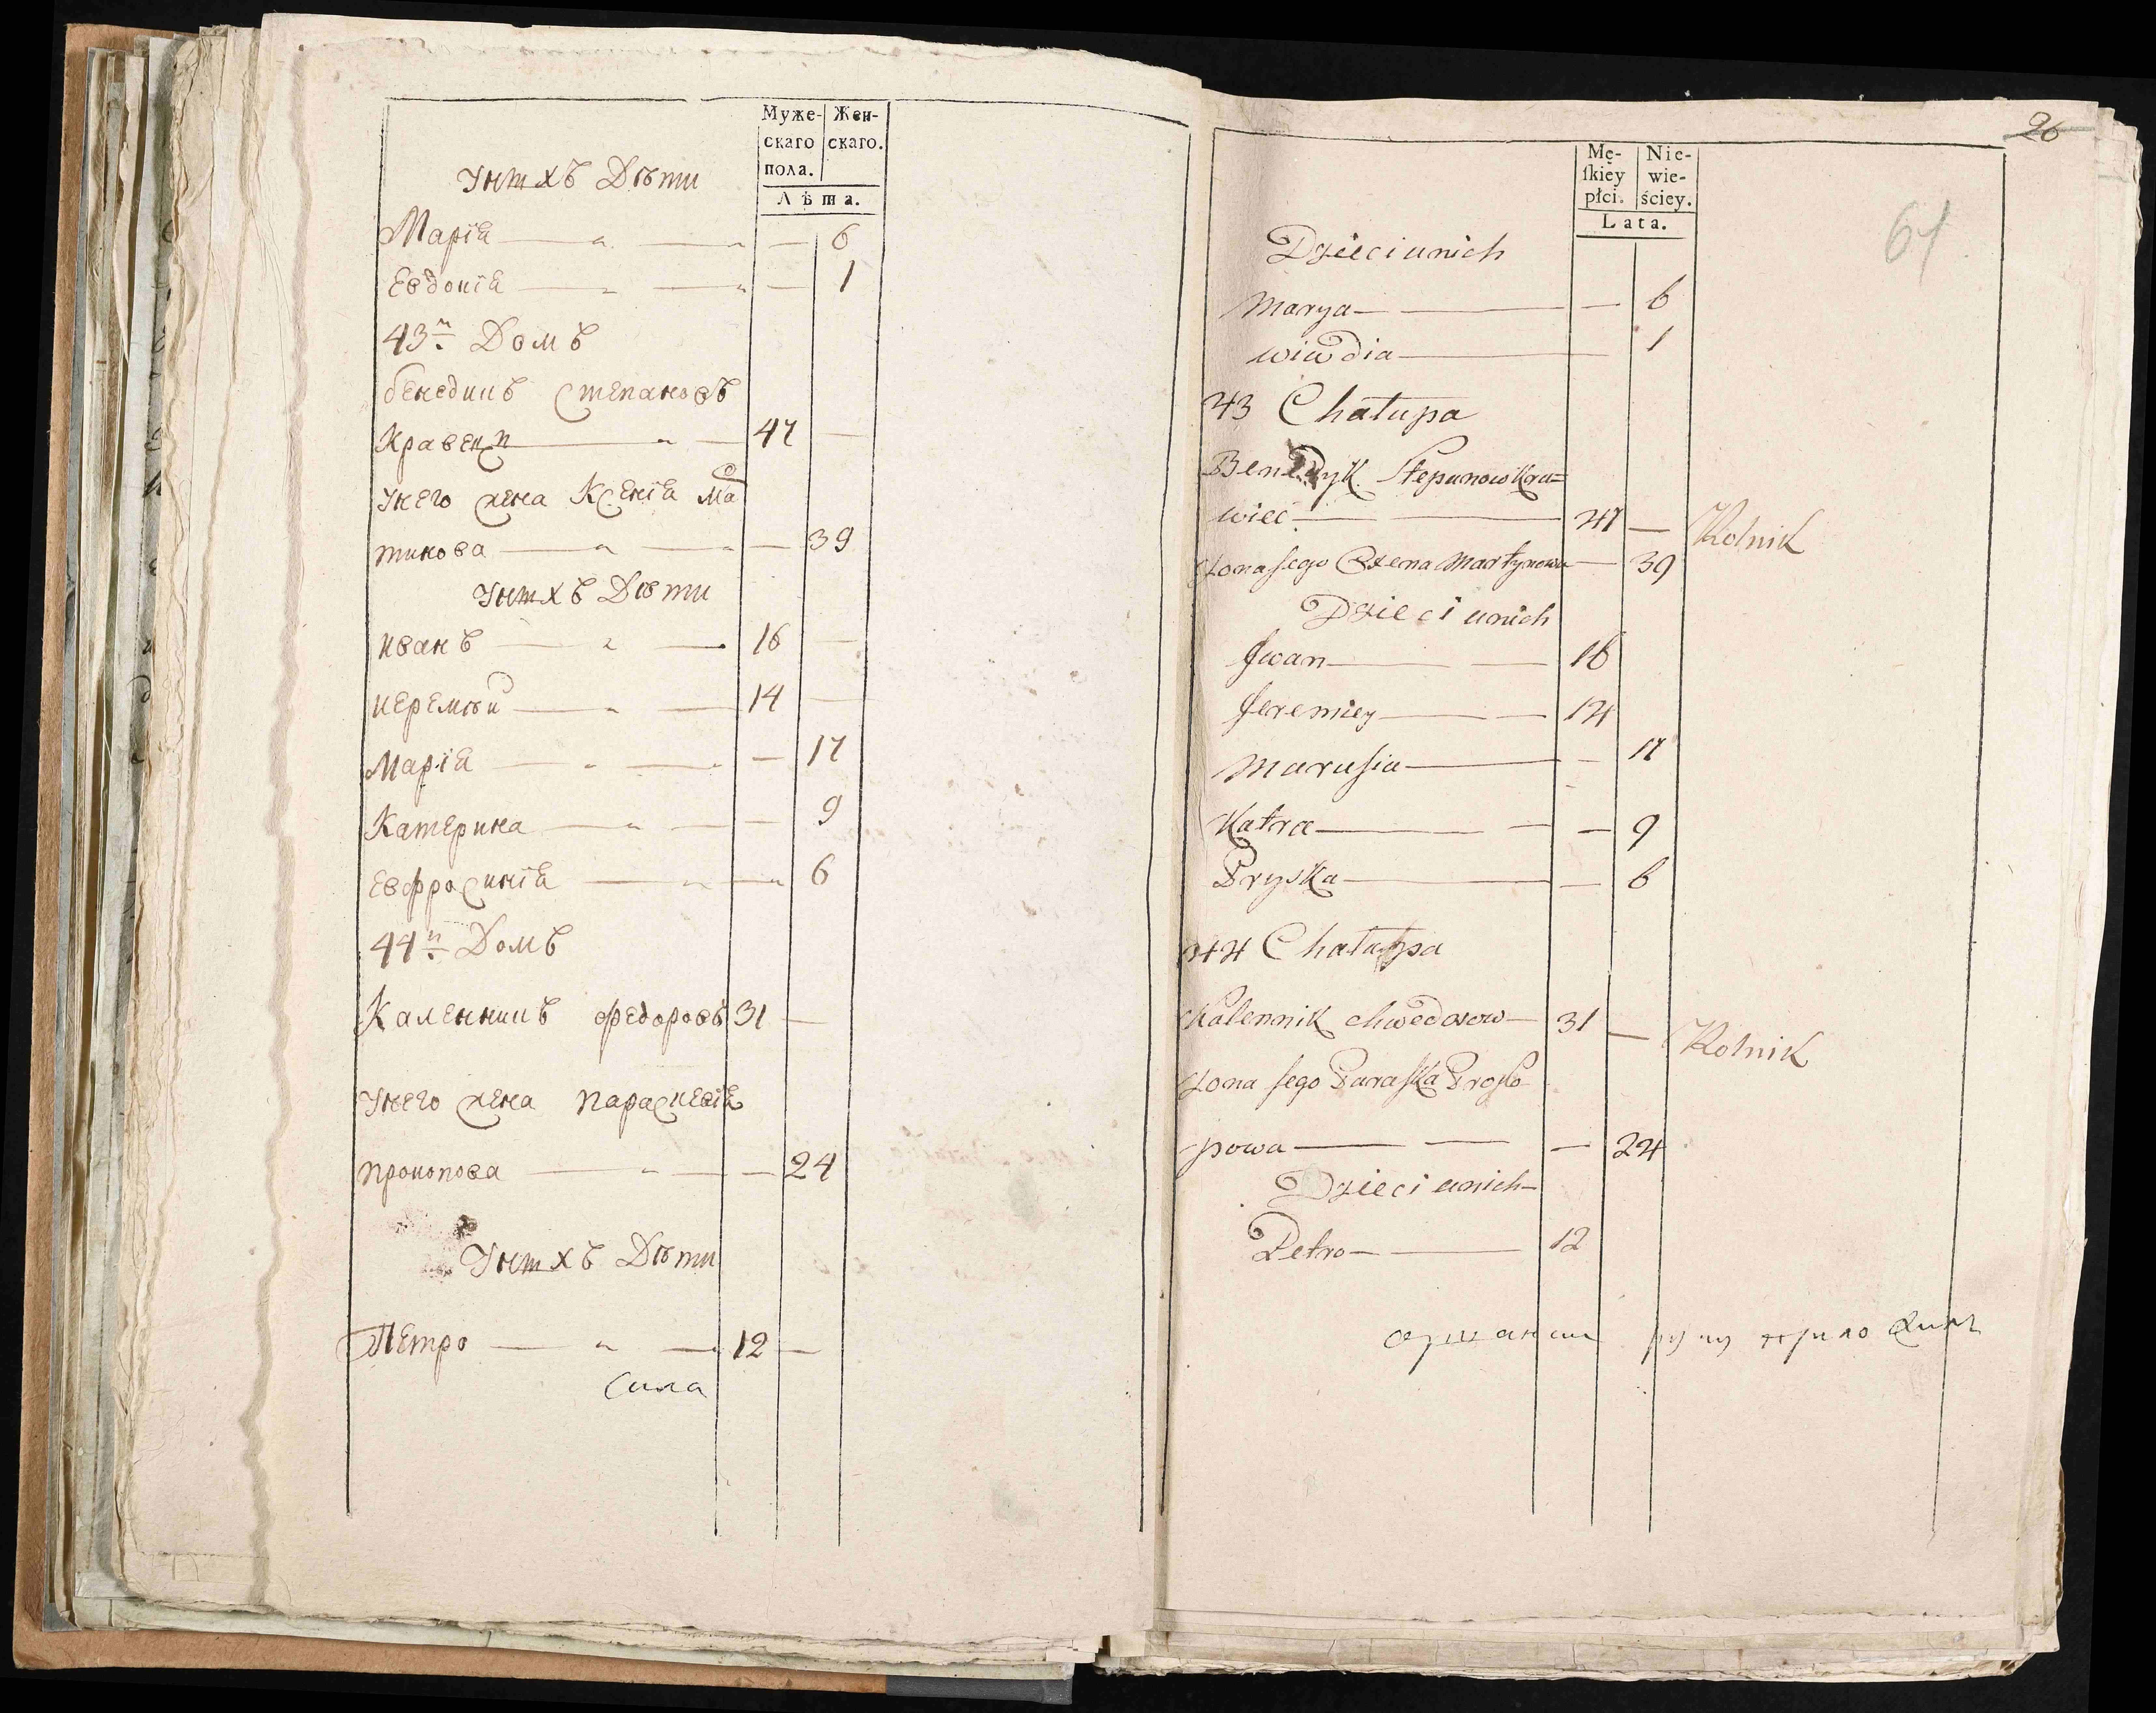 Муже-
скаго
пола.
Жен-
скаго.
Лѣта.
Унихъ Дѣти
Марїя — " — " — 6
Евдокїя — " — " — 1
43й Домъ
бенедикъ Степановъ
Кравец — " — 47 —
Унего жена Ксенїя Ма
тикова — " — " — 39
Унихъ Дѣти
иванъ — " — 16 —
иеремѣй — " — 14 —
Марїя — " — " — 17
Катерина — " — — 9
Евфросинїя — " — " 6
44й Домъ
Каленникъ федоровъ 31 —
Унего жена параскевїя
прокопова — " — — 24
Унихъ Дѣти
Петро — " — 12 —
Сила
26
61
Mę-
ſkiey
płci.
Nie-
wie-
ściey.
Lata.
Dzieci unich
Marya — — — 6
Wiwdia — 1
43 Chałupa
Benedyk Stepanow Kra=
wiec — — 47 — Rolnik
Żona Jego Oxena Martynowa — 39
Dzieci unich
Jwan — — 16
Jeremiey — — 14
Marusia — — 17
Katra — — — 9
Pryska — — 6
44 Chałupa
Kalennik Chwedorow — 31 — Rolnik
Żona Jego Paraska Proko
powa — — — 24
Dzieci unich
Petro — — 12
руку